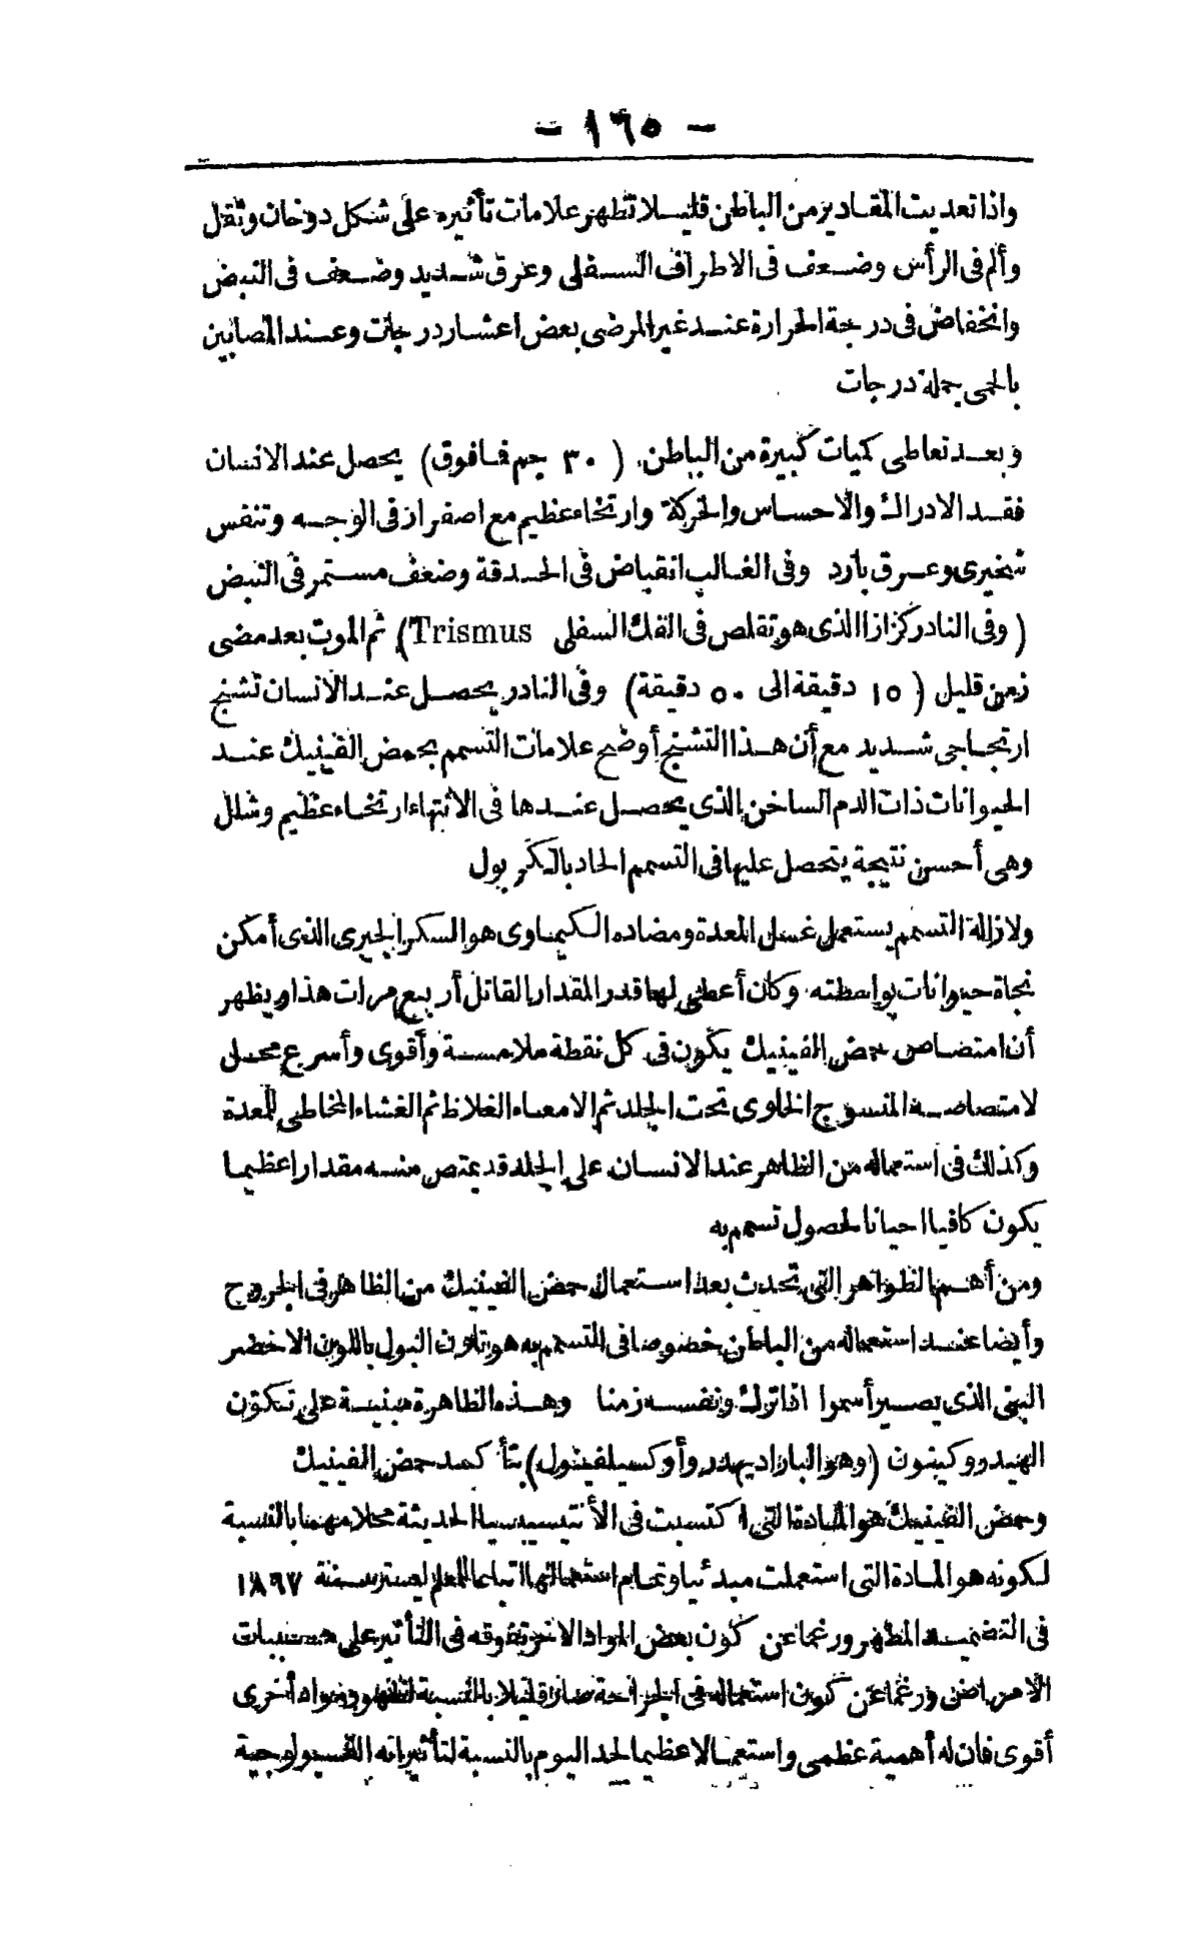 - ١٦٥ -
واذا تعديت المقادير من الباطن قليلا تظهر علامات تأثيره على شكل دوخان وثقل
وألم فى الرأس وضعف فى الاطراف السفلى وعرق شديد وضعف فى النبض
وانخفاض فى درجة الحرارة عند غير المرضى بعض اعشار درجات وعند المصابين
بالحمى جملة درجات
وبعد تعاطى كميات كبيرة من الباطن ( ٣٠ جم فما فوق) يحصل عند الانسان
فقد الادراك والاحساس والحركة وارتخاء عظيم مع اصفرار فى الوجه وتنفس
شخيرى وعرق بارد وفى الغالب انقباض فى الحدقة وضعف مستمر فى النبض
(وفى النادر كزاز الذى هو تقلص فى الفك السفلى Trismus) ثم الموت بعد مضى
زمن قليل (١٥ دقيقة الى ٥٠ دقيقة) وفى النادر يحصل عند الانسان تشنج
ارتجاجى شديد مع أن هذا التشنج أوضح علامات التسمم بحمض الفينيك عند
الحيوانات ذات الدم الساخن الذى يحصل عندها فى الانتهاء ارتخاء عظيم وشلل
وهى أحسن نتيجة يتحصل عليها فى التسمم الحاد بالكربول
ولازالة التسمم يستعمل غسل المعدة ومضاده الكيماوى هو السكر الجيرى الذى أمكن
نجاة حيوانات بواسطته وكان أعطى لها قدر المقدار القاتل أربع مرات هذا ويظهر
أن امتصاص حمض الفينيك يكون فى كل نقطة ملامسة وأقوى وأسرع محل
لامتصاصه المنسوج الخلوى تحت الجلد ثم الامعاء الغلاظ ثم الغشاء المخاطى للمعدة
وكذلك فى استعماله من الظاهر عند الانسان على الجلد قد يمتص منه مقدارا عظيما
يكون كافيا احيانا لحصول تسمم به
ومن أهم الظواهر التى تحدث بعد استعمال حمض الفينيك من الظاهر فى الجروح
وأيضا عند استعماله من الباطن خصوصا فى التسمم به هو تلون البول باللون الاخضر
البنى الذى يصير أسمرا اذا ترك ونفسه زمنا وهذه الظاهرة مبنية على تكون
الهيدروكينون (وهو الباراديهدروأوكسيلفينول) بتأكسد حمض الفينيك
وحمض الفينيك هو المادة التى اكتسبت فى الأنتيسيبسيا الحديثة محلا مهما بالنسبة
لكونه هو المادة التى استعملت مبدئيا وتمام استعمالها اتباعا للمعلم ليستر سنة ١٨٦٧
فى التضميد المطهر ورغما عن كون بعض المواد الاخر تفوقه فى التأثير على مسببات
الامراض ورغما عن كون استعماله فى الجراحة صار قليلا بالنسبة لظهور مواد أخرى
أقوى فان له أهمية عظمى واستعمالا عظيما لحد اليوم بالنسبة لتأثيراته الفسيولوجية